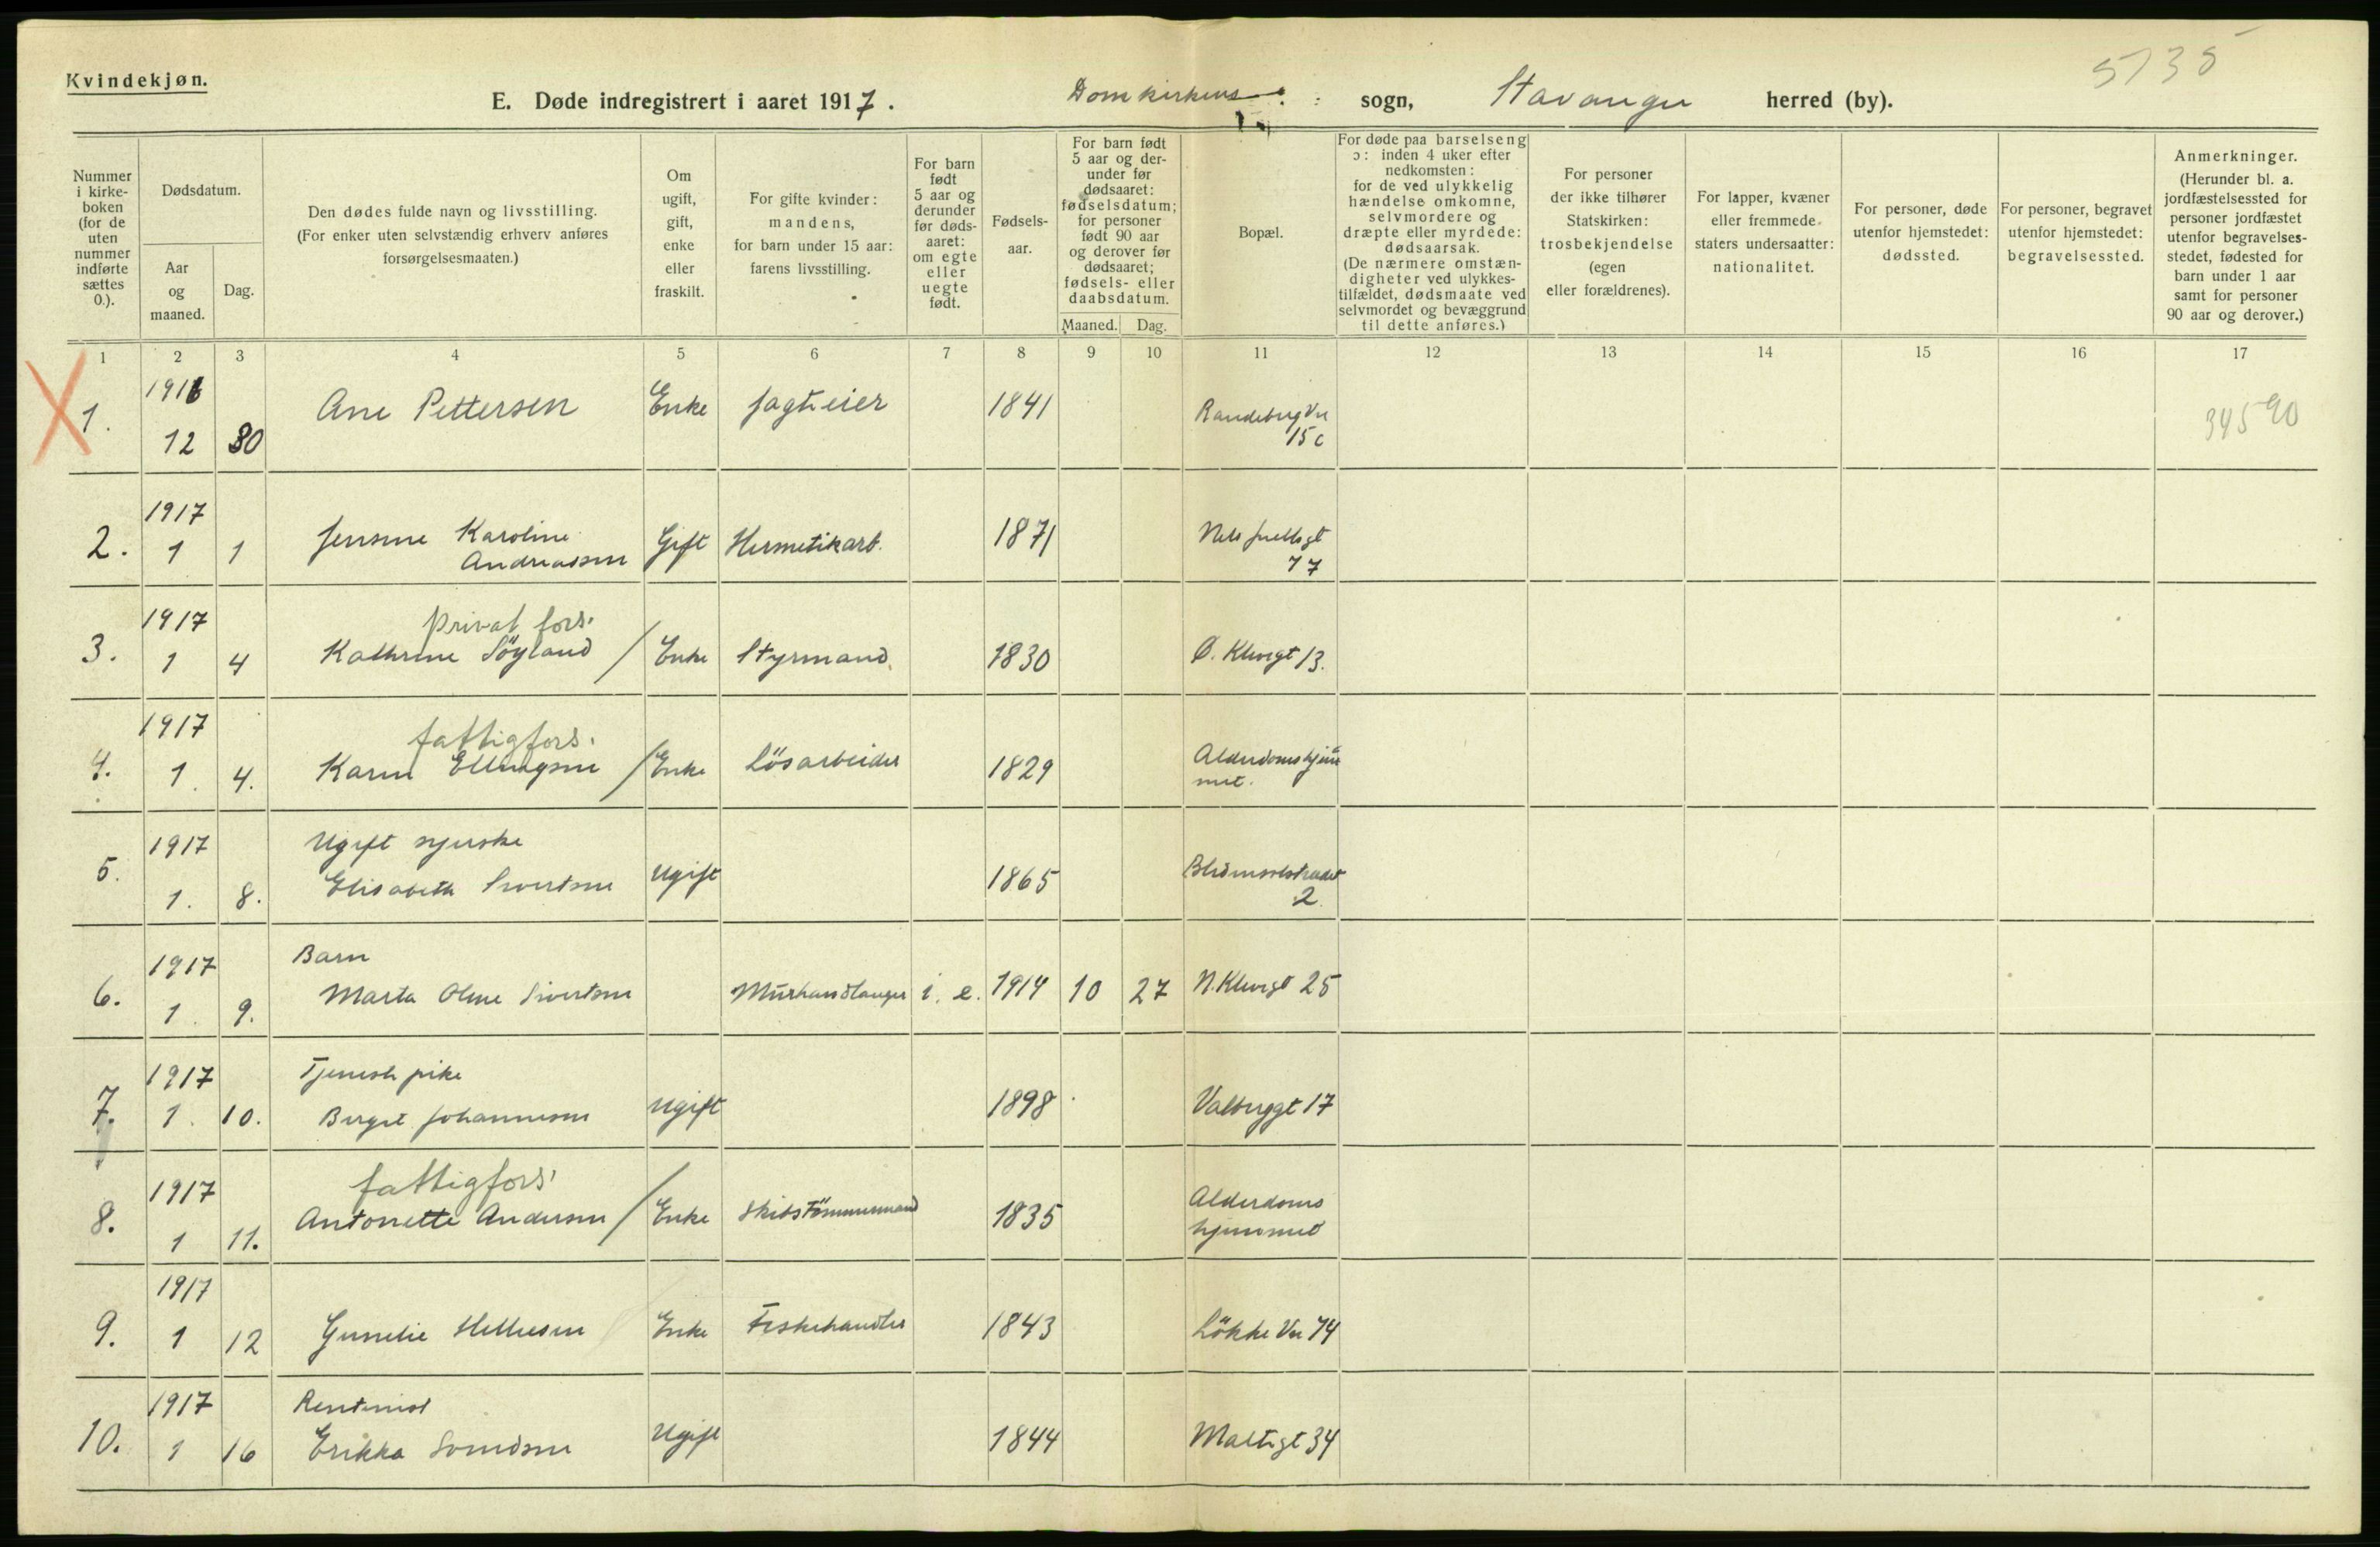 Kvindekjøn.
5735
E. Døde indregistrert i aaret 1917.
Domkirkens sogn, Stavanger herred (by).
Nummer i kirkeboken (for de uten nummer indførte sættes 0.).
Dødsdatum.
Aar og maaned.
Dag.
Den dødes fulde navn og livsstilling.
(For enker uten selvstændig erhverv anføres forsørgelsesmaaten.)
Om ugift, gift, enke eller fraskilt.
For gifte kvinder: mandens, for barn under 15 aar: farens livsstilling.
For barn født 5 aar og derunder før dødsaaret: om egte eller uegte født.
Fødselsaar.
For barn født 5 aar og derunder før dødsaaret: fødselsdatum; for personer født 90 aar og derover før dødsaaret; fødsels- eller daabsdatum.
Maaned. Dag.
Bopæl.
For døde paa barselseng ɔ: inden 4 uker efter nedkomsten: for de ved ulykkelig hændelse omkomne, selvmordere og dræpte eller myrdede: dødsaarsak. (De nærmere omstændigheter ved ulykkestilfældet, dødsmaate ved selvmordet og bevæggrund til dette anføres.)
For personer der ikke tilhører Statskirken: trosbekjendelse (egen eller forældrenes).
For lapper, kvæner eller fremmede staters undersaatter: nationalitet.
For personer, døde utenfor hjemstedet: dødssted.
For personer, begravet utenfor hjemstedet: begravelsessted.
Anmerkninger. (Herunder bl. a. jordfæstelsessted for personer jordfæstet utenfor begravelsesstedet, fødested for barn under 1 aar samt for personer 90 aar og derover.)
1 2 3 4 5 6 7 8 9 10 11 12 13 14 15 16 17
X 1. 1916 12 30 Ane Pettersen Enke Jagteier 1841 Randebergvn 15 c 34590
2. 1917 1 1 Jensine Karoline Andreassen Gift Hermetikarb. 1871 Nels Juelsgt 77
privat fors.
3. 1917 1 4 Kathrine Söyland / Enke Styrmand. 1830 Ø. Klevegt 13.
fattigfors.
4. 1917 1. 4. Karen Ellingsen / Enke Lösarbeider 1829 Alderdomshjemmet.
Ugift syerske
5. 1917 1. 8. Elisabeth Sivertsen Ugift 1865 2.
Barn
6. 1917 1. 9. Marta Oline Sivertsen Murhandlanger i. e. 1914 10 27 N. Klevegt 25
Tjenestepike
7. 1917 1. 10. Birgit Johannesen Ugift 1898 Valbjggt 17
fattigfors.
8. 1917 1 11. Antonette Andersen / Enke Skibstömmermand 1835 Alderdoms hjemmet
9. 1917 1 12 Gunelie Helliesen Enke Fiskehandler 1843 Lökke Vn 74
Rentenist
10. 1917 1 16 Erikka Svendsen Ugift 1844 Maltigt 34